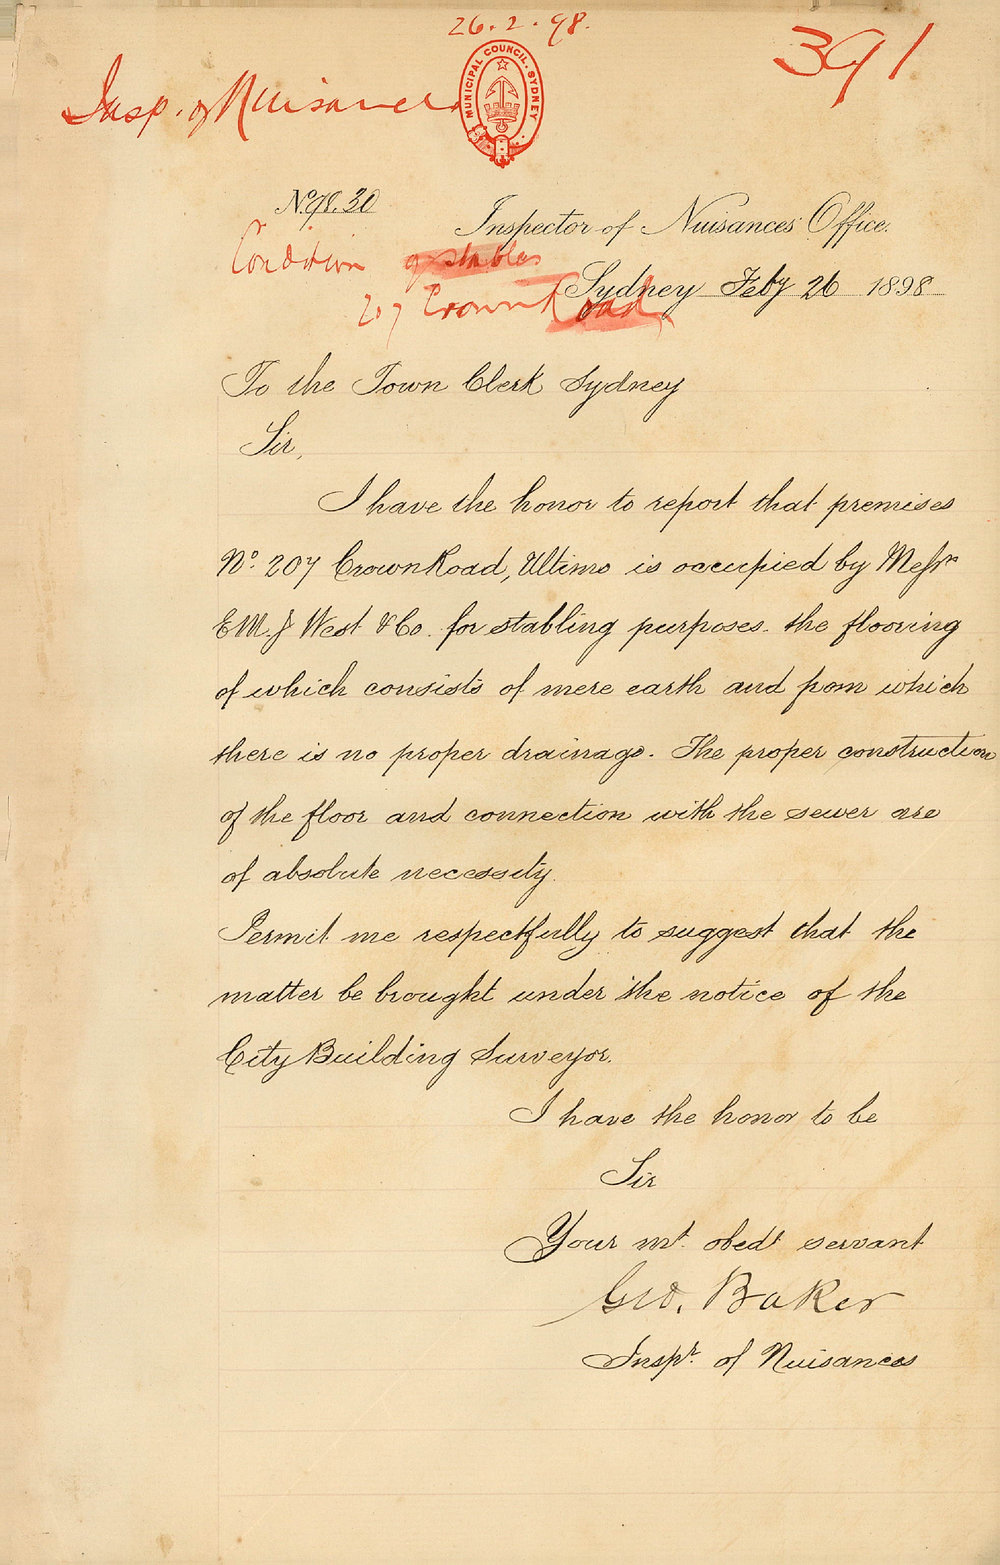 26.2.98.
391
Insp. of Nuisances
MUNICIPAL COUNCIL. SYDNEY
No. 98.30
Inspector of Nuisances Office.
Condition of stables
Sydney Feby 26 1898
207 Crown Road
To the Town Clerk Sydney
Sir,
I have the honor to report that premises
No. 207 Crown Road, Ultimo is occupied by Messrs
E. M. J West & Co. for stabling purposes. the flooring
of which consists of mere earth and from which
there is no proper drainage. The proper construction
of the floor and connection with the sewer are
of absolute necessity.
Permit me respectfully to suggest that the
matter be brought under the notice of the
City Building Surveyor.
I have the honor to be
Sir
Your mt. obedt servant
Geo. Baker
Inspr. of Nuisances